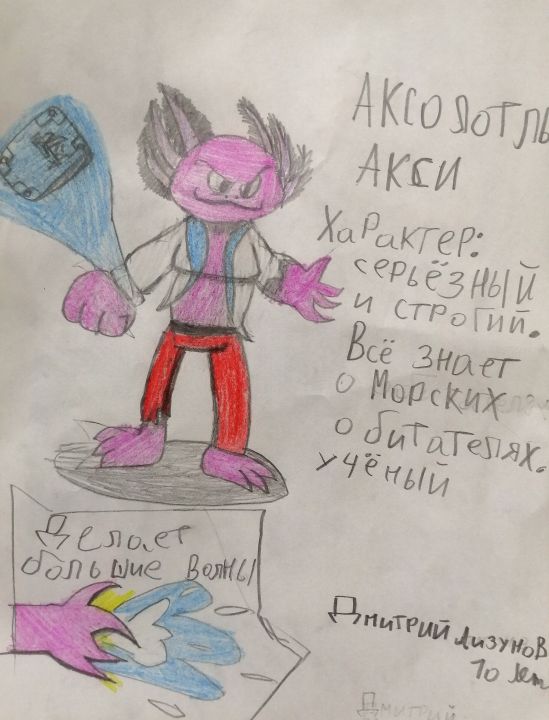 АКСОЛОТЛЬ
АКСИ
Характер:
серьёзный
и строгий.
Всё знает
о морских
обитателях.
учёный
Делает
большие волны
Дмитрий Лизунов
10 лет
Дмитрий